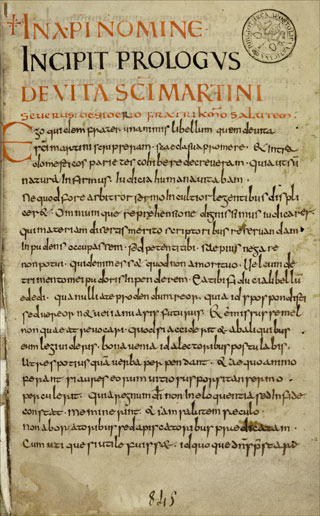 IN XPI NOMINE
INCIPIT PROLOGUS
DE VITA SCI MARTINI
Severus desiderio fratri kmo salutem
Ego quidem frater unanimis libellum quem de vita
sci martini scripseram sceda sua promere & intra
domesticos parietes cohibere decreveram quia ut su
natura infirmus iudicia humana vitabam
Ne quod fore arbitror sermo incultior legentibus displi
cer& Omniumque reprehensione dignissimus iudicarer
qui materiam disertis merito scriptoribus reservandam
inpudens occupassem sed petenti tibi saepius negare
non potui quid enim ess& quod non amori tuo vel cum de
trimento mei pudoris inpenderem Ea tibi fiducia libellum
edidi qua nulli a te prodendum reor quia id spopondisti
sed vereor ne & ianua ris futurus & emissus semel
non queat revocari quod si acciderit & ab aliquibus
eum legi videris bona venia id a lectoribus postulabis
ut res potius quam verba perpendant & aequo animo
ferant si aures eorum vitiosus forsitan sermo
perculerit Quia regnum di non in eloquentia sed in fide
constat Meminerint & iam salutem saeculo
non ab oratoribus sed a piscatoribus praedicatam
Cum utique si utile fuiss& id quoque dns praestare
845